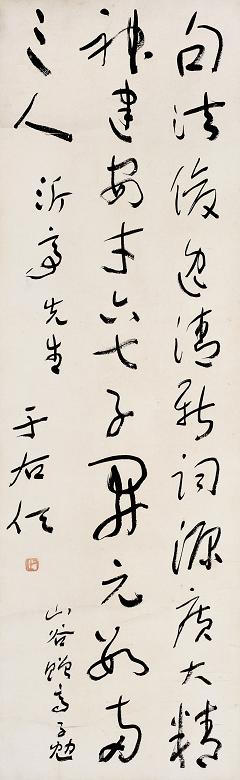 句法俊逸清新词源广大精
神建安才六七子开元数两
三人
沂亭先生
于右任
山谷赠高子勉